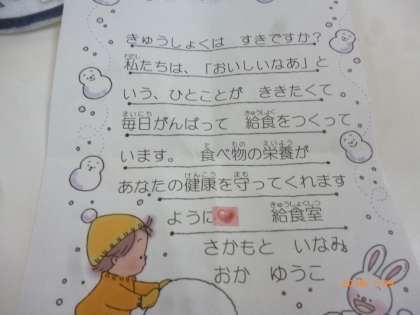 きゅうしょくは すきですか?
私たちは、「おいしいなあ」と
いう、ひとことが ききたくて
毎日がんばって 給食をつくって
います。 食べ物の栄養が
あなたの健康を守ってくれます
ように 給食室
さかもと いなみ
おか ゆうこ